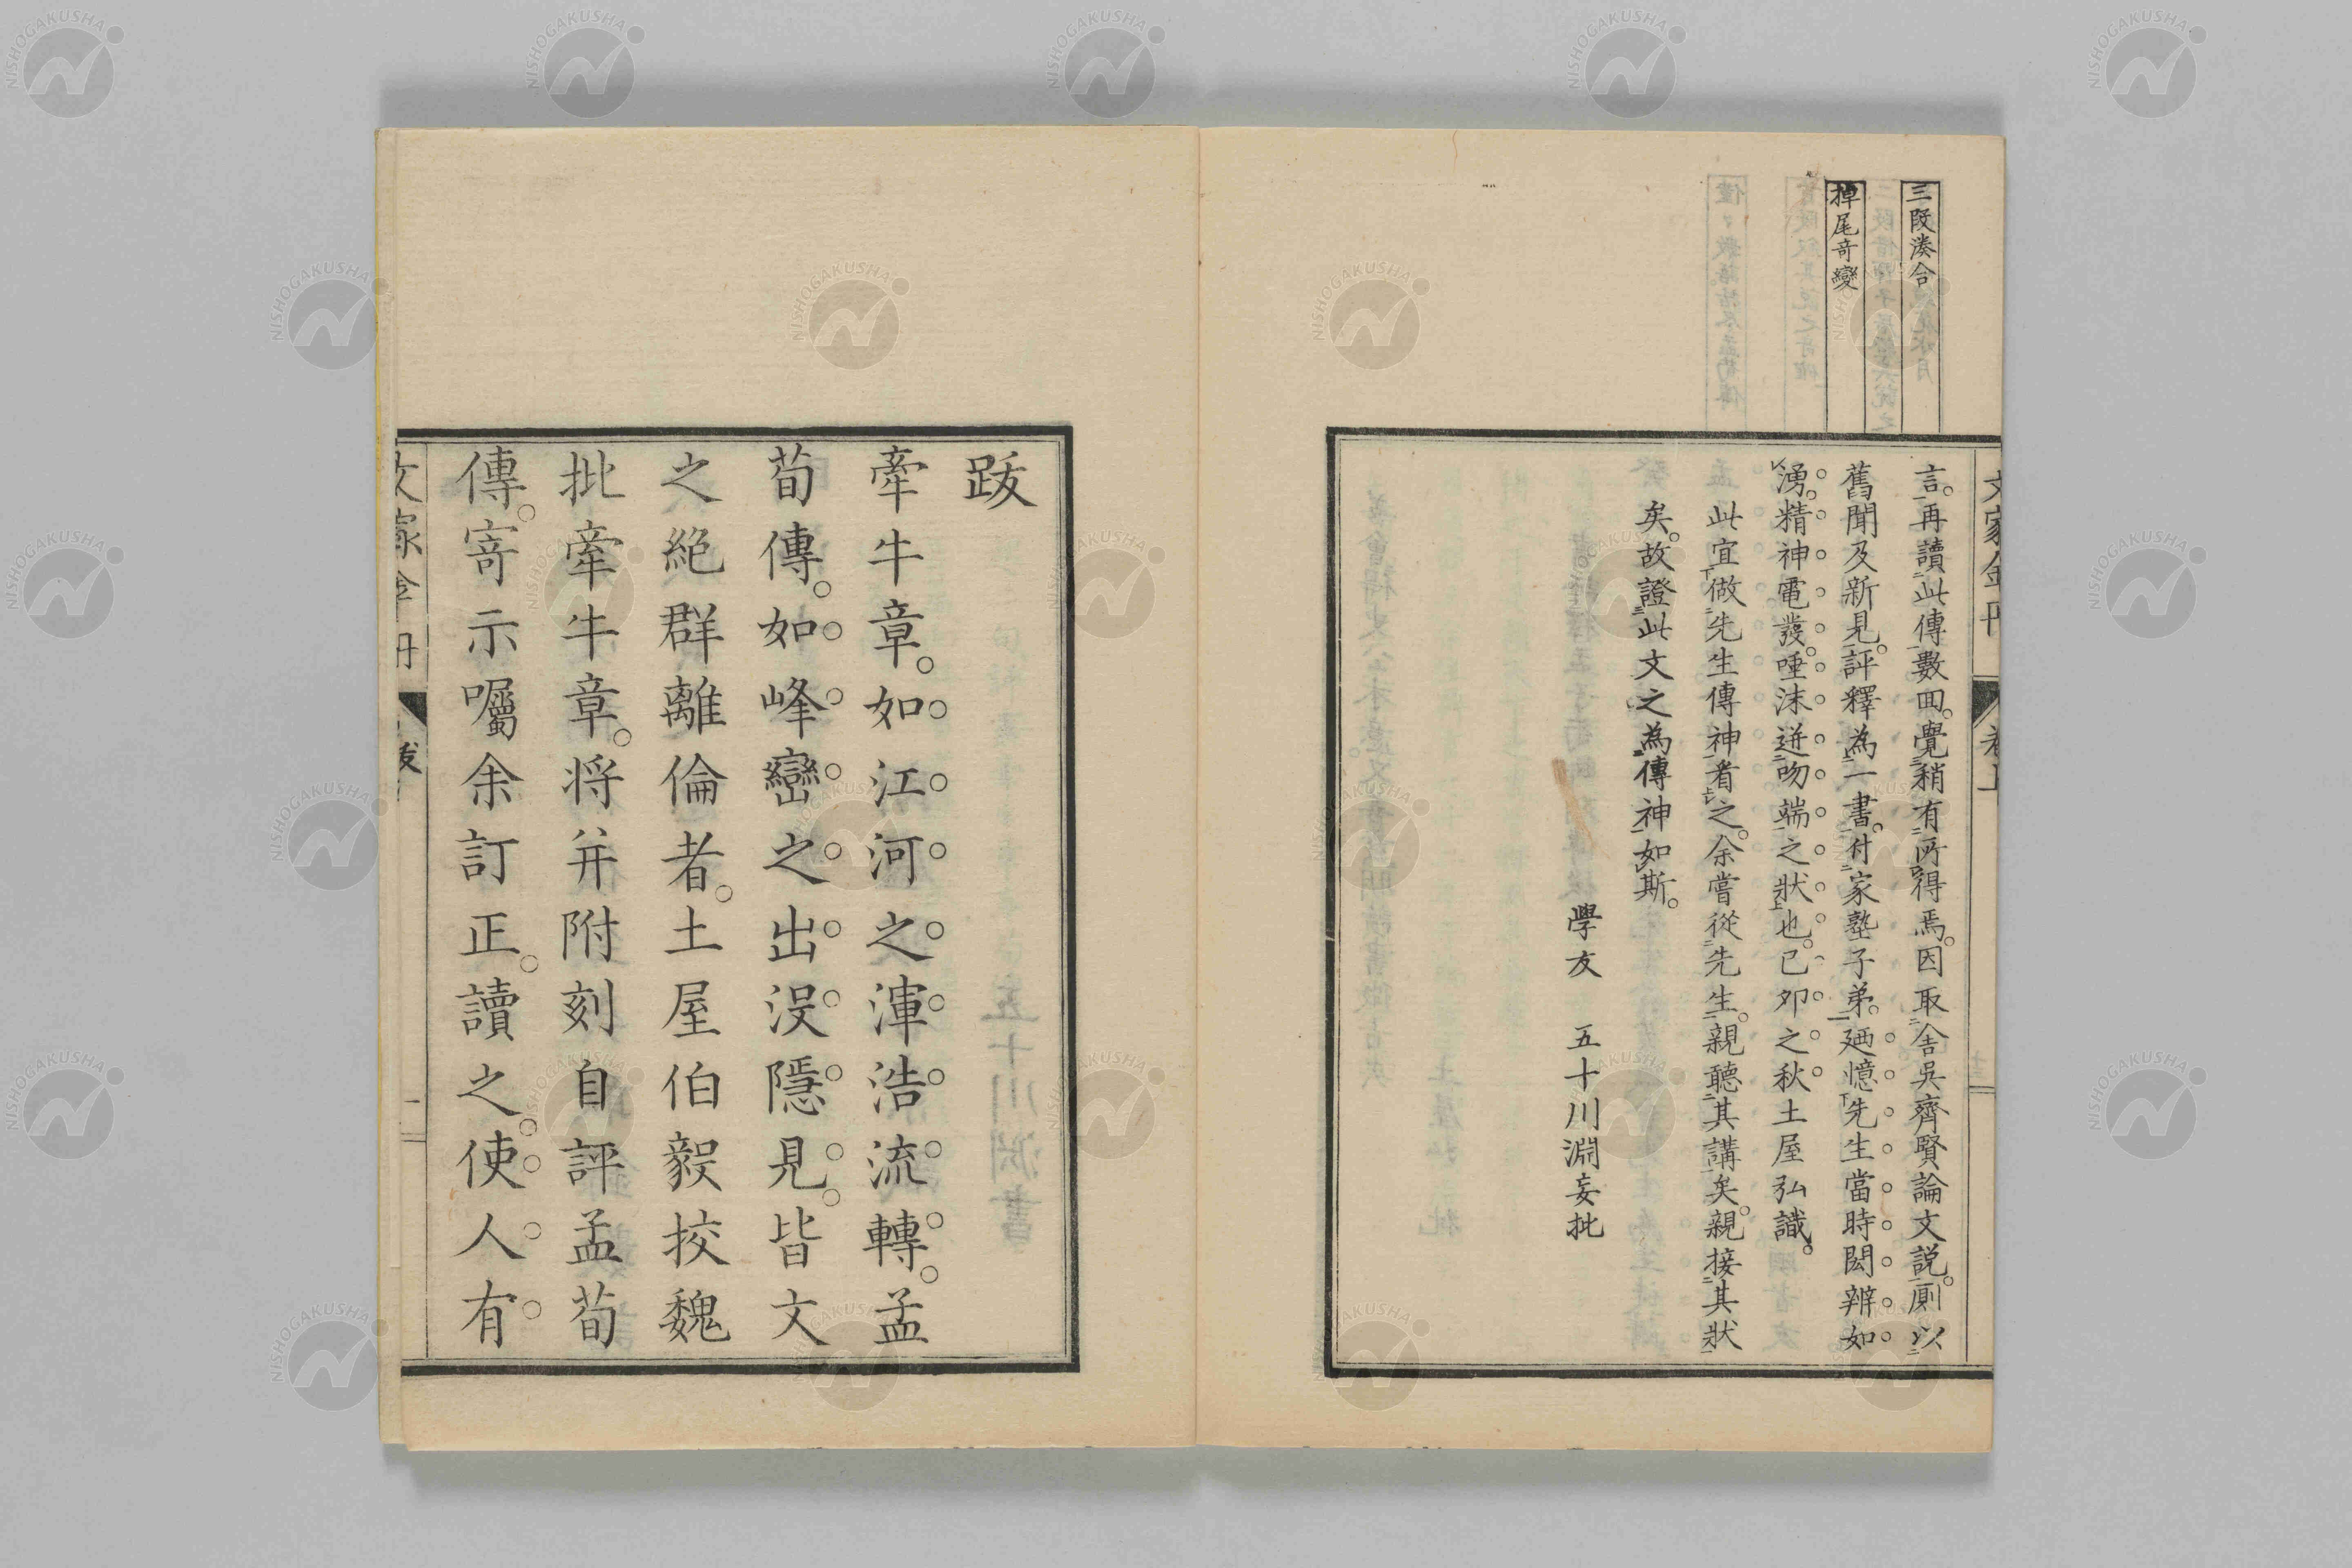 三段湊合
掉尾奇變
言。再讀此傳數回。覺稍有所得焉。因取舍吳齊賢論文説。厠以
舊聞及新見。評釋為一書。付家塾子弟。廼憶先生當時閎辨如
湧。精神電發。唾沫迸吻端之狀也。已夘之秋土屋弘識。
此宜做先生傳神看之。余嘗從先生。親聽其講矣。親接其狀
矣。故證此文之為傳神如斯。
學友　五十川淵妄批
文家金丹
卷上
跋
牽牛章。如江河之渾浩流轉。孟
荀傳。如峰巒之出没隱見。皆文
之絶群離倫者。土屋伯毅挍魏
批牽牛章。将并附刻自評孟荀
傳。寄示囑余訂正。讀之。使人有
文家金丹
跋
一
NISHOGAKUSHA